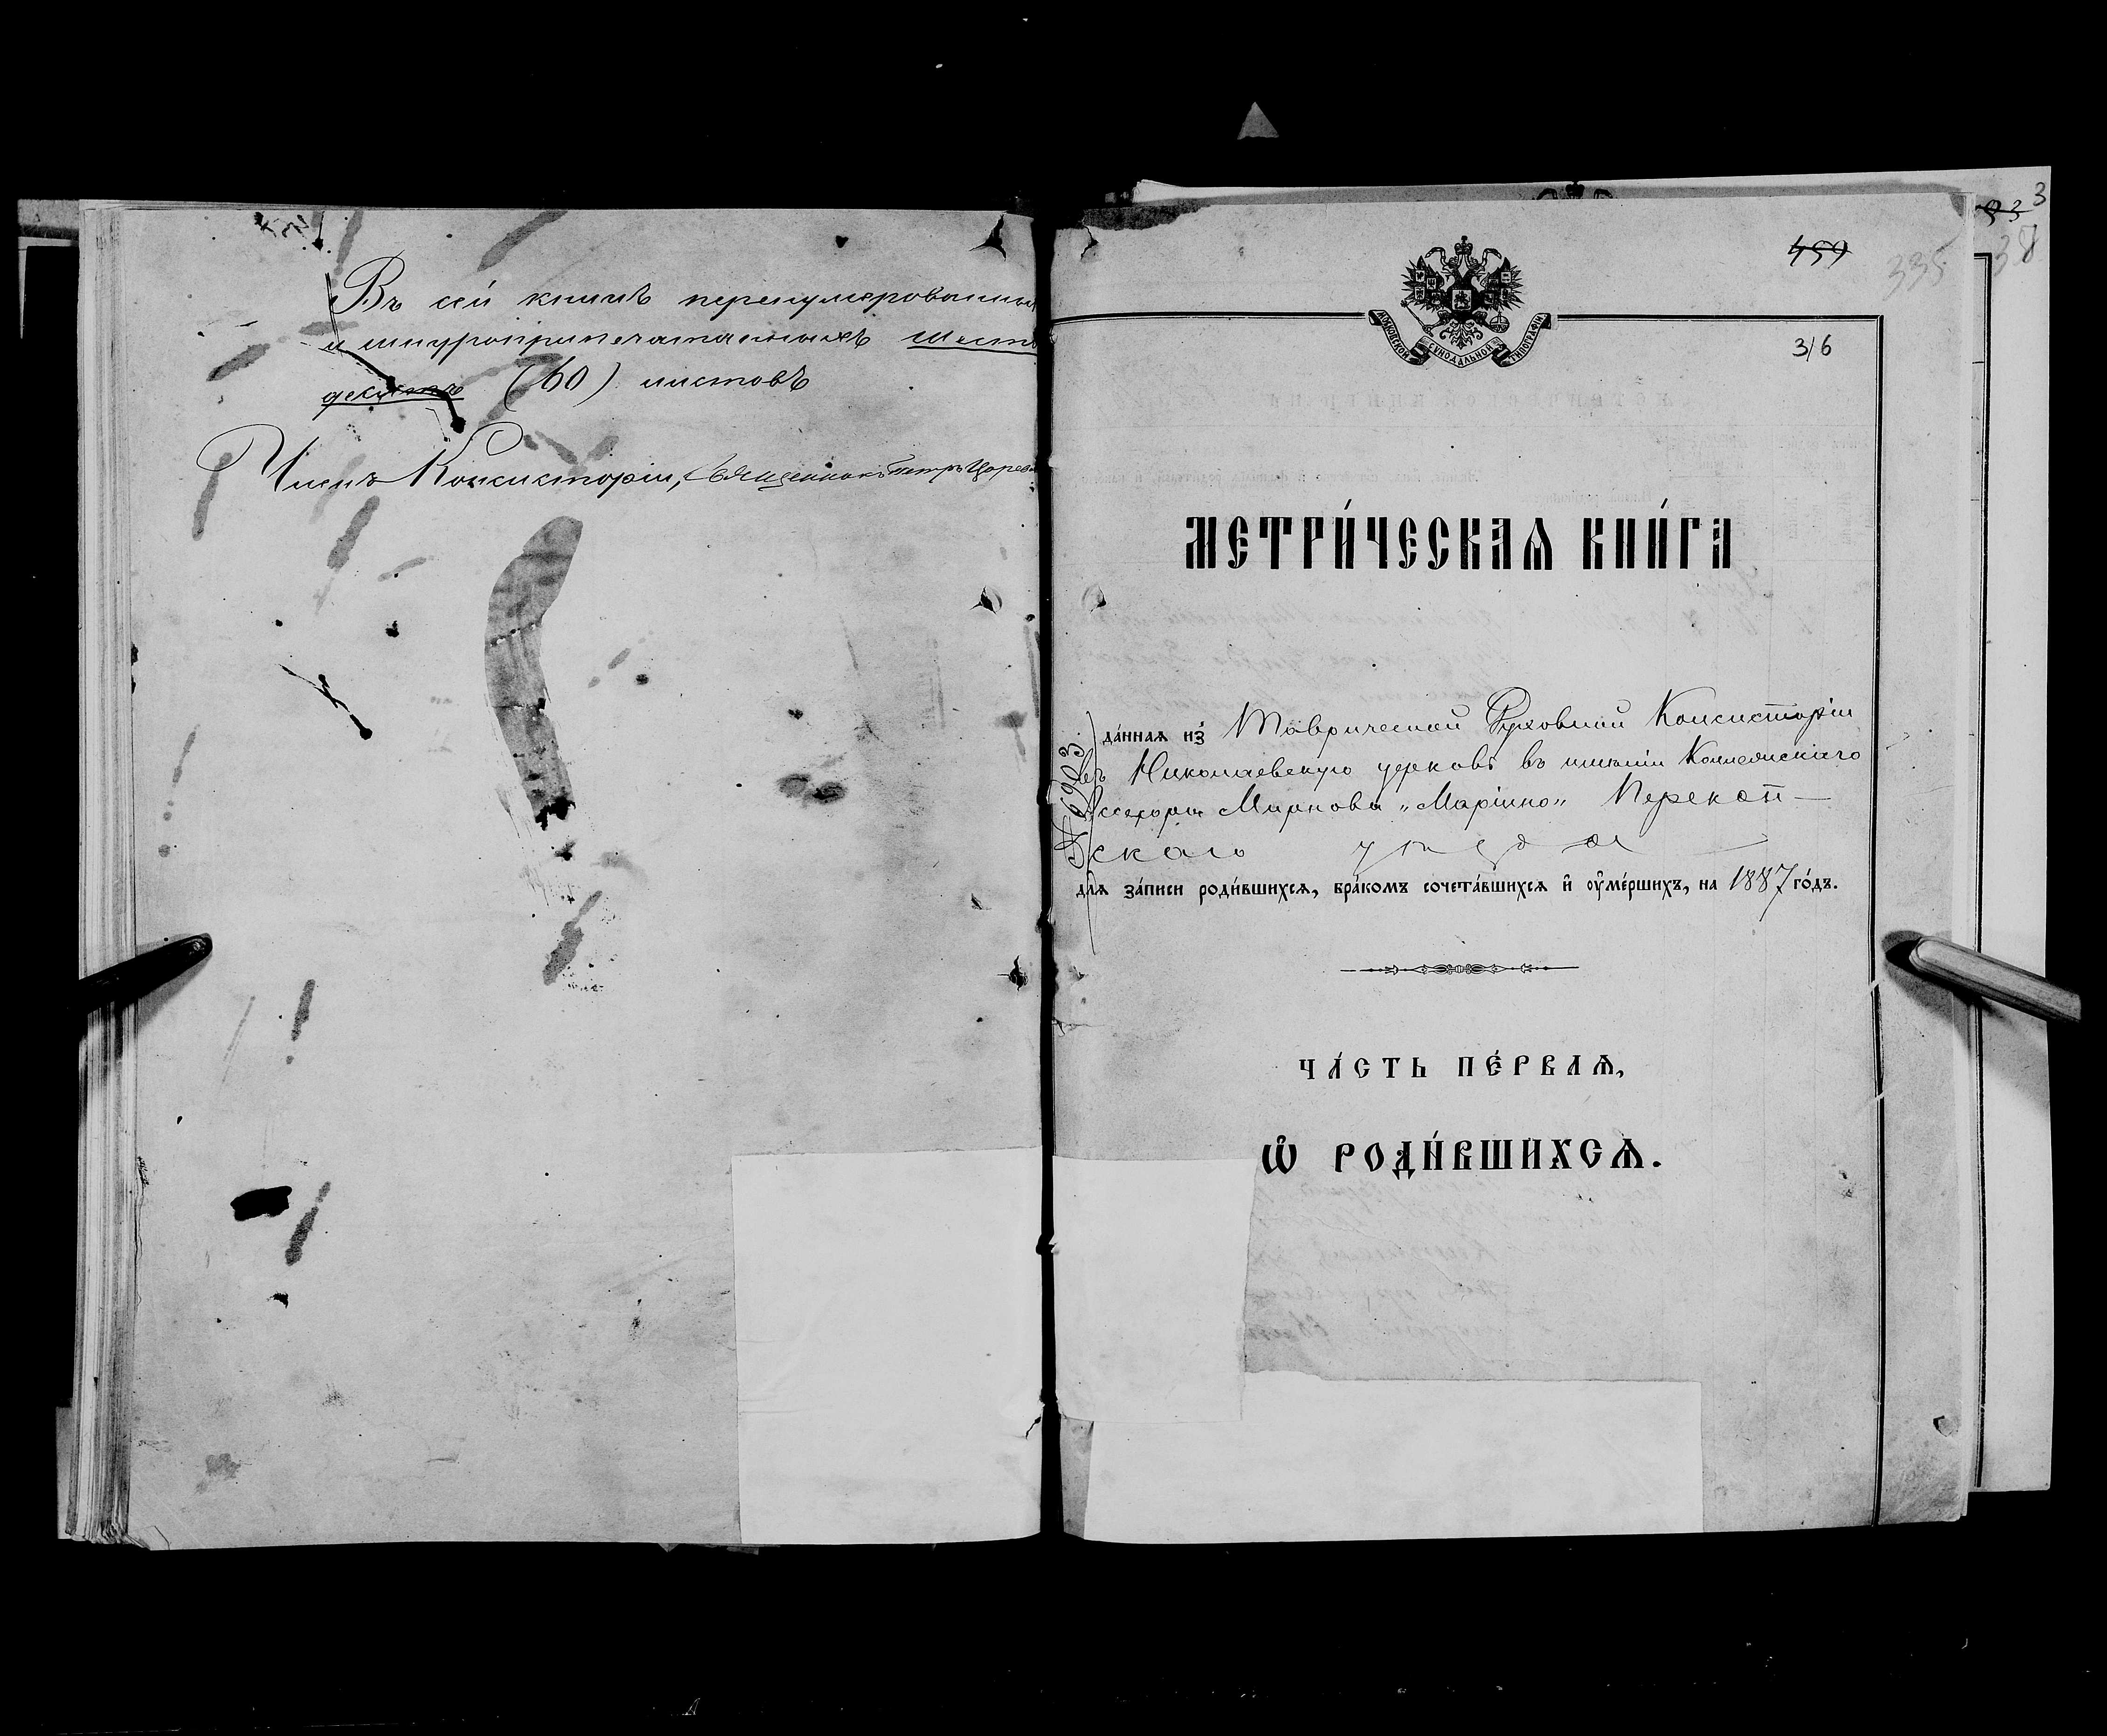 Въ сей книгѣ перенумерованныхъ
и шнуроприпечатанныхъ шесть
десятъ (60) листовъ
Членъ Консисторіи, Священникъ Петръ
459
335
3
93
38
МОСКОВСКОЙ СѴНОДАЛЬНОЙ ТИПОГРАФІИ
316
МЕТРИ́ЧЕСКАѦ КНИ́ГА
№ 6903
да́ннаѧ из̾ Таврической Духовной Консисторіи
въ Николаевскую церковь въ имѣніи Коллежскаго
Ассесора Маркова „Маріино“ Перекоп-
скаго уѣзда
длѧ за́писи роди́вшихсѧ, бра́комъ сочета́вшихсѧ и҆ ᲂу҆ме́ршихъ, на 1887 го́дъ.
ЧА́СТЬ ПЕ́РВАѦ,
Ѡ҆ РОДИ́ВШИХСѦ.